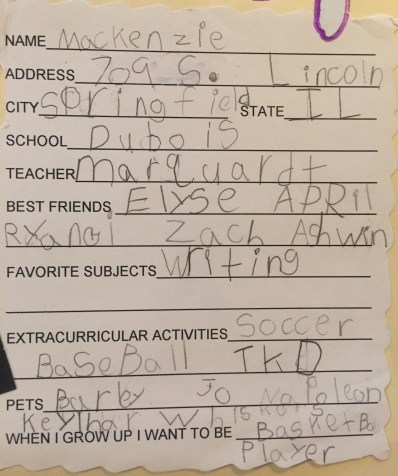 NAME Mackenzie
ADDRESS 709 S. Lincoln
CITY Springfield STATE IL
SCHOOL Dubois
TEACHER Marquardt
BEST FRIENDS Elyse APRil
Zach Ashwin
FAVORITE SUBJECTS Writing
EXTRACURRICULAR ACTIVITIES Soccer
BaseBall TKD
PETS Barley Jo Napoleon
Whiskers
WHEN I GROW UP I WANT TO BE BasketBa
Player